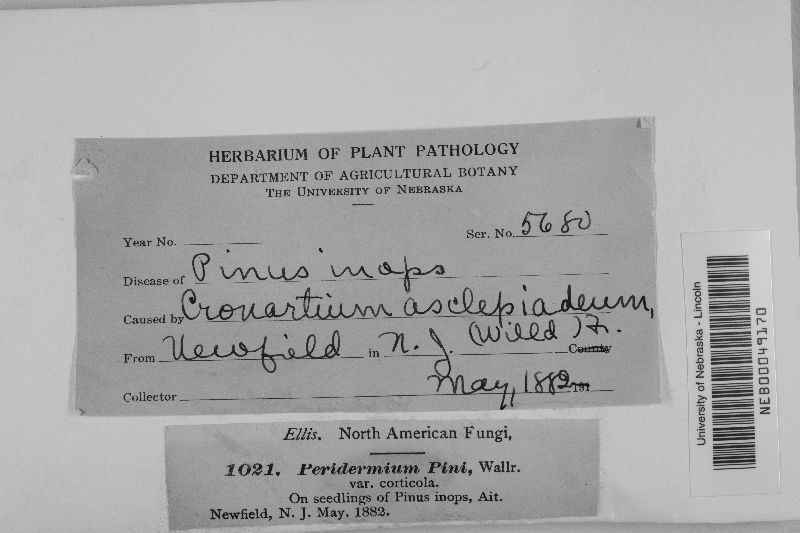 HERBARIUM OF PLANT PATHOLOGY
DEPARTMENT OF AGRICULTURAL BOTANY
THE UNIVERSITY OF NEBRASKA
Year No. Ser. No. 5680
Disease of Pinus inops
Caused by Cronartium asclepiadeum,
(Willd) Fr.
From Newfield in N. J. County
May, 1882 191
Collector
Ellis. North American Fungi,
1021. Peridermium Pini, Wallr.
var. corticola.
On seedlings of Pinus inops, Ait.
Newfield, N. J. May, 1882.
University of Nebraska - Lincoln
NEB00049170